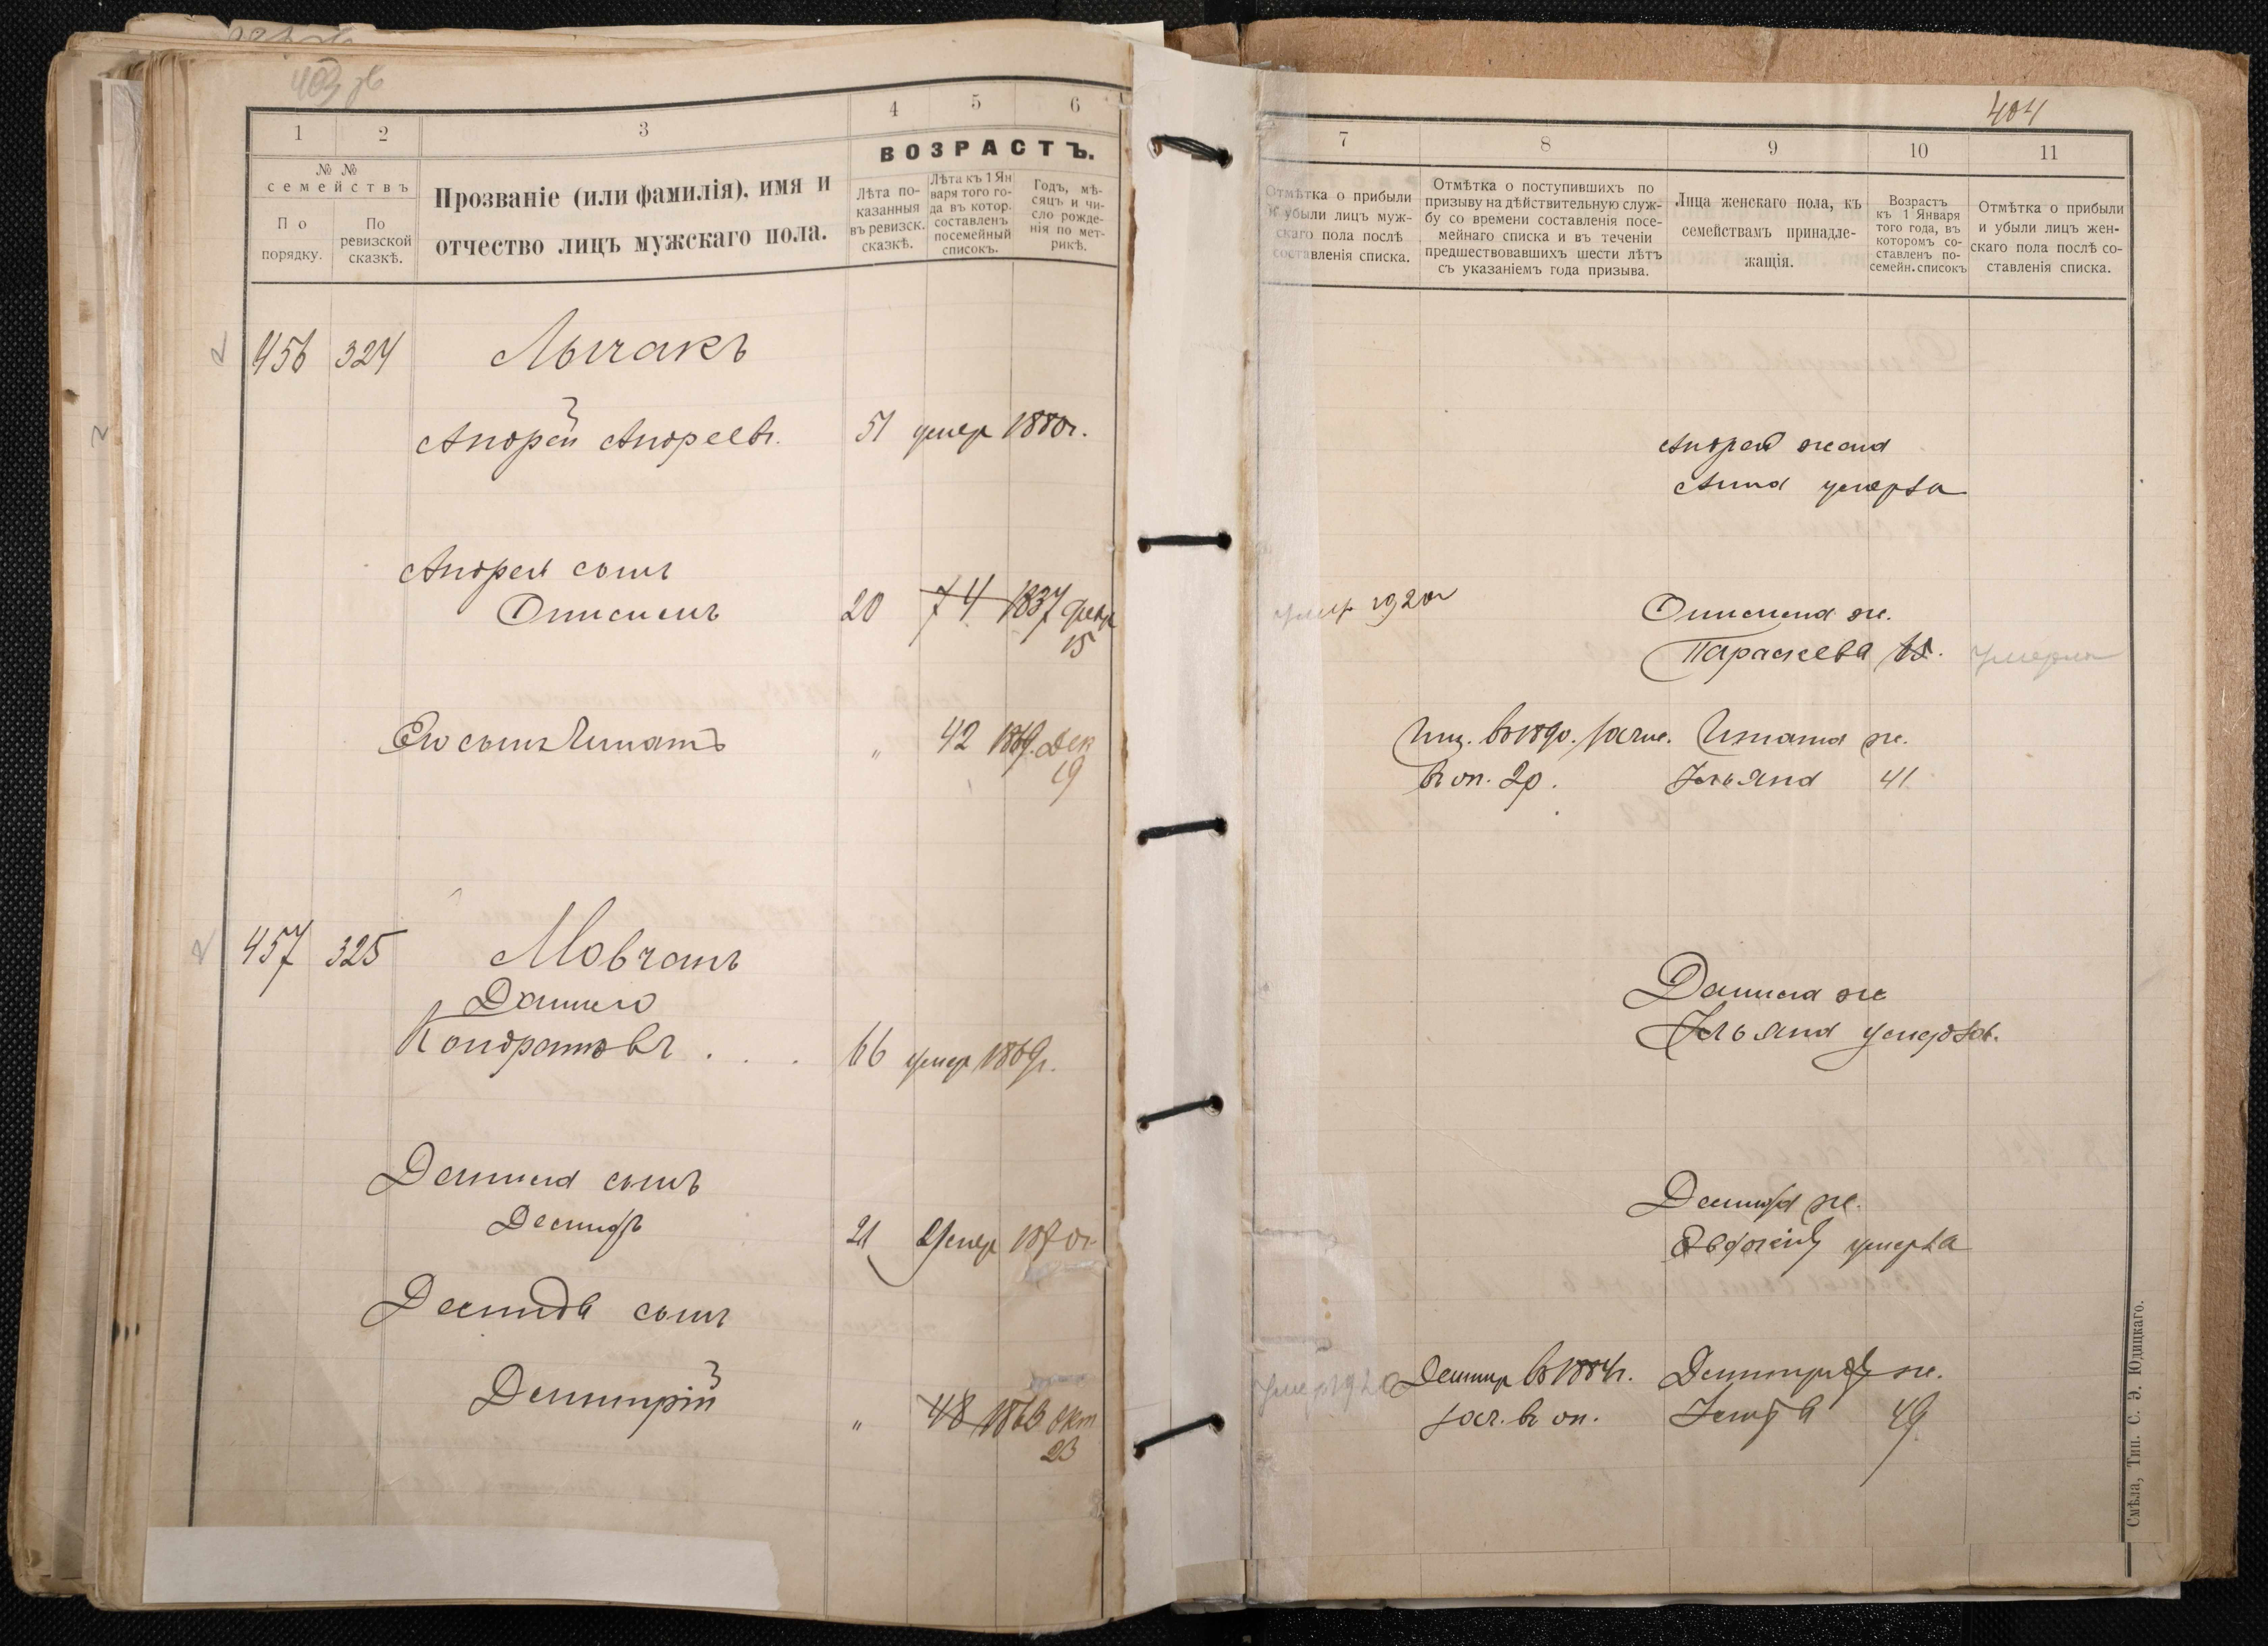 403 зв
1 2 3 4 5 6
№ №
семействъ
По
порядку.
По
ревизской
сказкѣ.
Прозваніе (или фамилія), имя и
отчество лицъ мужскаго пола.
ВОЗРАСТЪ.
Лѣта по-
казанныя
въ ревизск.
сказкѣ.
Лѣта къ 1 Ян
варя того го-
да въ котор.
составленъ
посемейный
списокъ.
Годъ, мѣ-
сяцъ и чи-
сло рожде-
нія по мет-
рикѣ.
456 324 Лычакъ
Андрей Андреевъ. 51 умер 1880г.
Андрея сынъ
Онисимъ 20 74 1837 февр
15
Его сынъ Игнатъ " 42 1869. Дек
19
457 325 Мовчанъ
Данило
Кондратовъ . . . 66 умер 1869г.
Данила сынъ
Демидъ 21 Умер 1870г
Демида сынъ
Димитрій " 48 1863 окт
23
404
7 8 9 10 11
Отмѣтка о прибыли
и убыли лицъ муж-
скаго пола послѣ
составленія списка.
Отмѣтка о поступившихъ по
призыву на дѣйствительную служ-
бу со времени составленія посе-
мейнаго списка и въ теченіи
предшествовавшихъ шести лѣтъ
съ указаніемъ года призыва.
Лица женскаго пола, къ
семействамъ принадле-
жащія.
Возрастъ
къ 1 Января
того года, въ
которомъ со-
ставленъ по-
семейн. списокъ
Отмѣтка о прибыли
и убыли лицъ жен-
скаго пола послѣ со-
ставленія списка.
Андрея жена
Анна умерла
умер 1920г Онисима ж.
Параскева умерла
Игн. въ 1890. зачис. Игната ж.
въ оп. 2р. Ульяна 41
Данила ж
Ульяна
Демида ж.
умерла
Умер 1920 Димитр въ 1884г. Димитрія ж.
зач. въ оп. 49
Смѣла, Тип. С. Э. Юдицкаго.